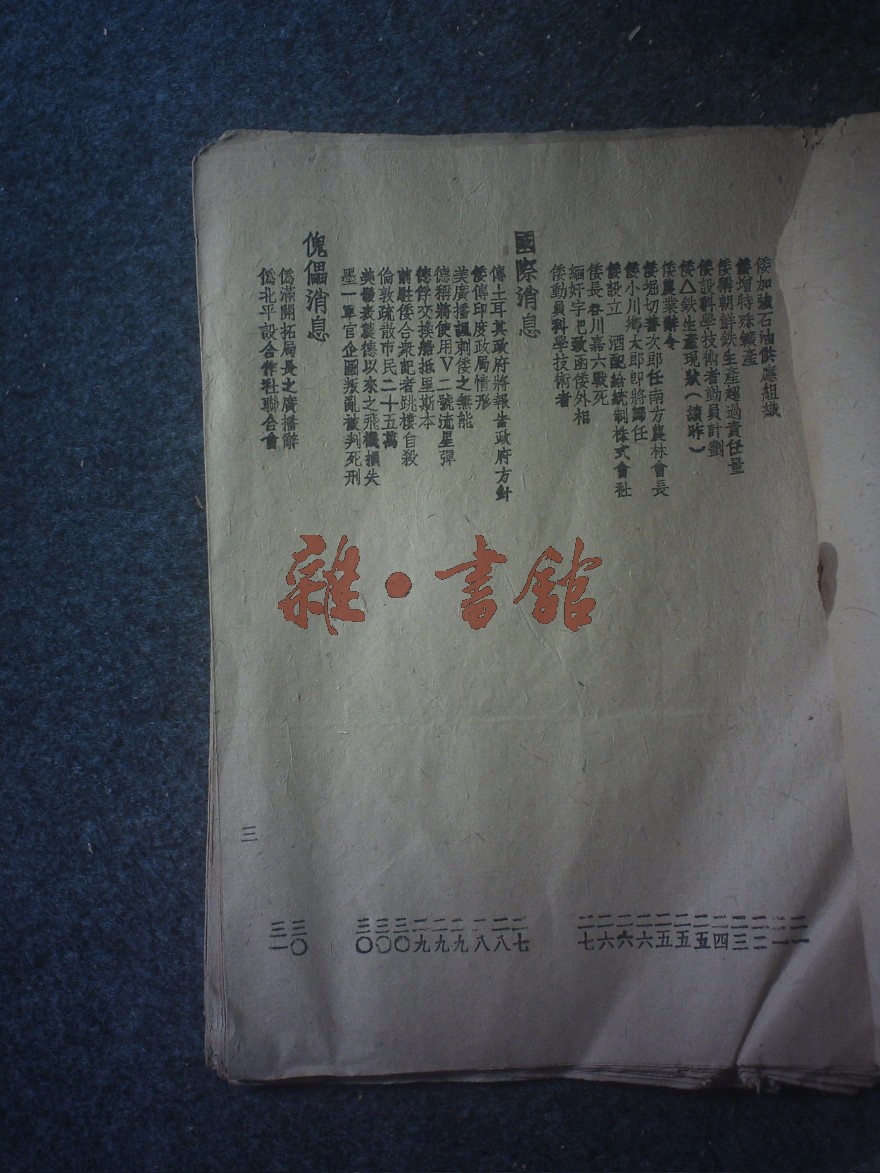 倭加強石油供應組織
倭增特殊鑛產
倭稱朝鮮鉄生產超過責任量
倭設科學技術者動員計劃
倭△鉄生產現狀(續昨)
倭農業辭令
倭堀切善次郎任南方農林會長
倭小川鄉太郎即將調任
倭設立酒配給統制株式會社
倭長谷川嘉六戰死
緬奸宇巴致函倭外相
倭動員科學技術者
國際消息
傳土耳其政府將報告政府方針
倭傳印度政局情形
美廣播諷刺倭之無能
德稱將使用V二號流星彈
德俘交換船抵里斯本
前駐倭合衆記者跳樓自殺
倫敦疏散市民二十五萬
英發表襲德以來之飛機損失
墨一軍官企圖叛亂被判死刑
傀儡消息
偽滿開拓局長之廣播辭
偽北平設合作社聯合會
二一
二一
二二
二三
二四
二五
二五
二五
二六
二六
二六
二七
二七
二八
二八
二九
二九
二九
三〇
三〇
三〇
三〇
三一
三
雜·書館